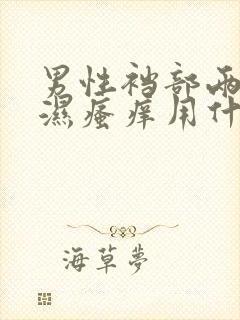 男性裆部两
濕瘙痒用什
海草夢